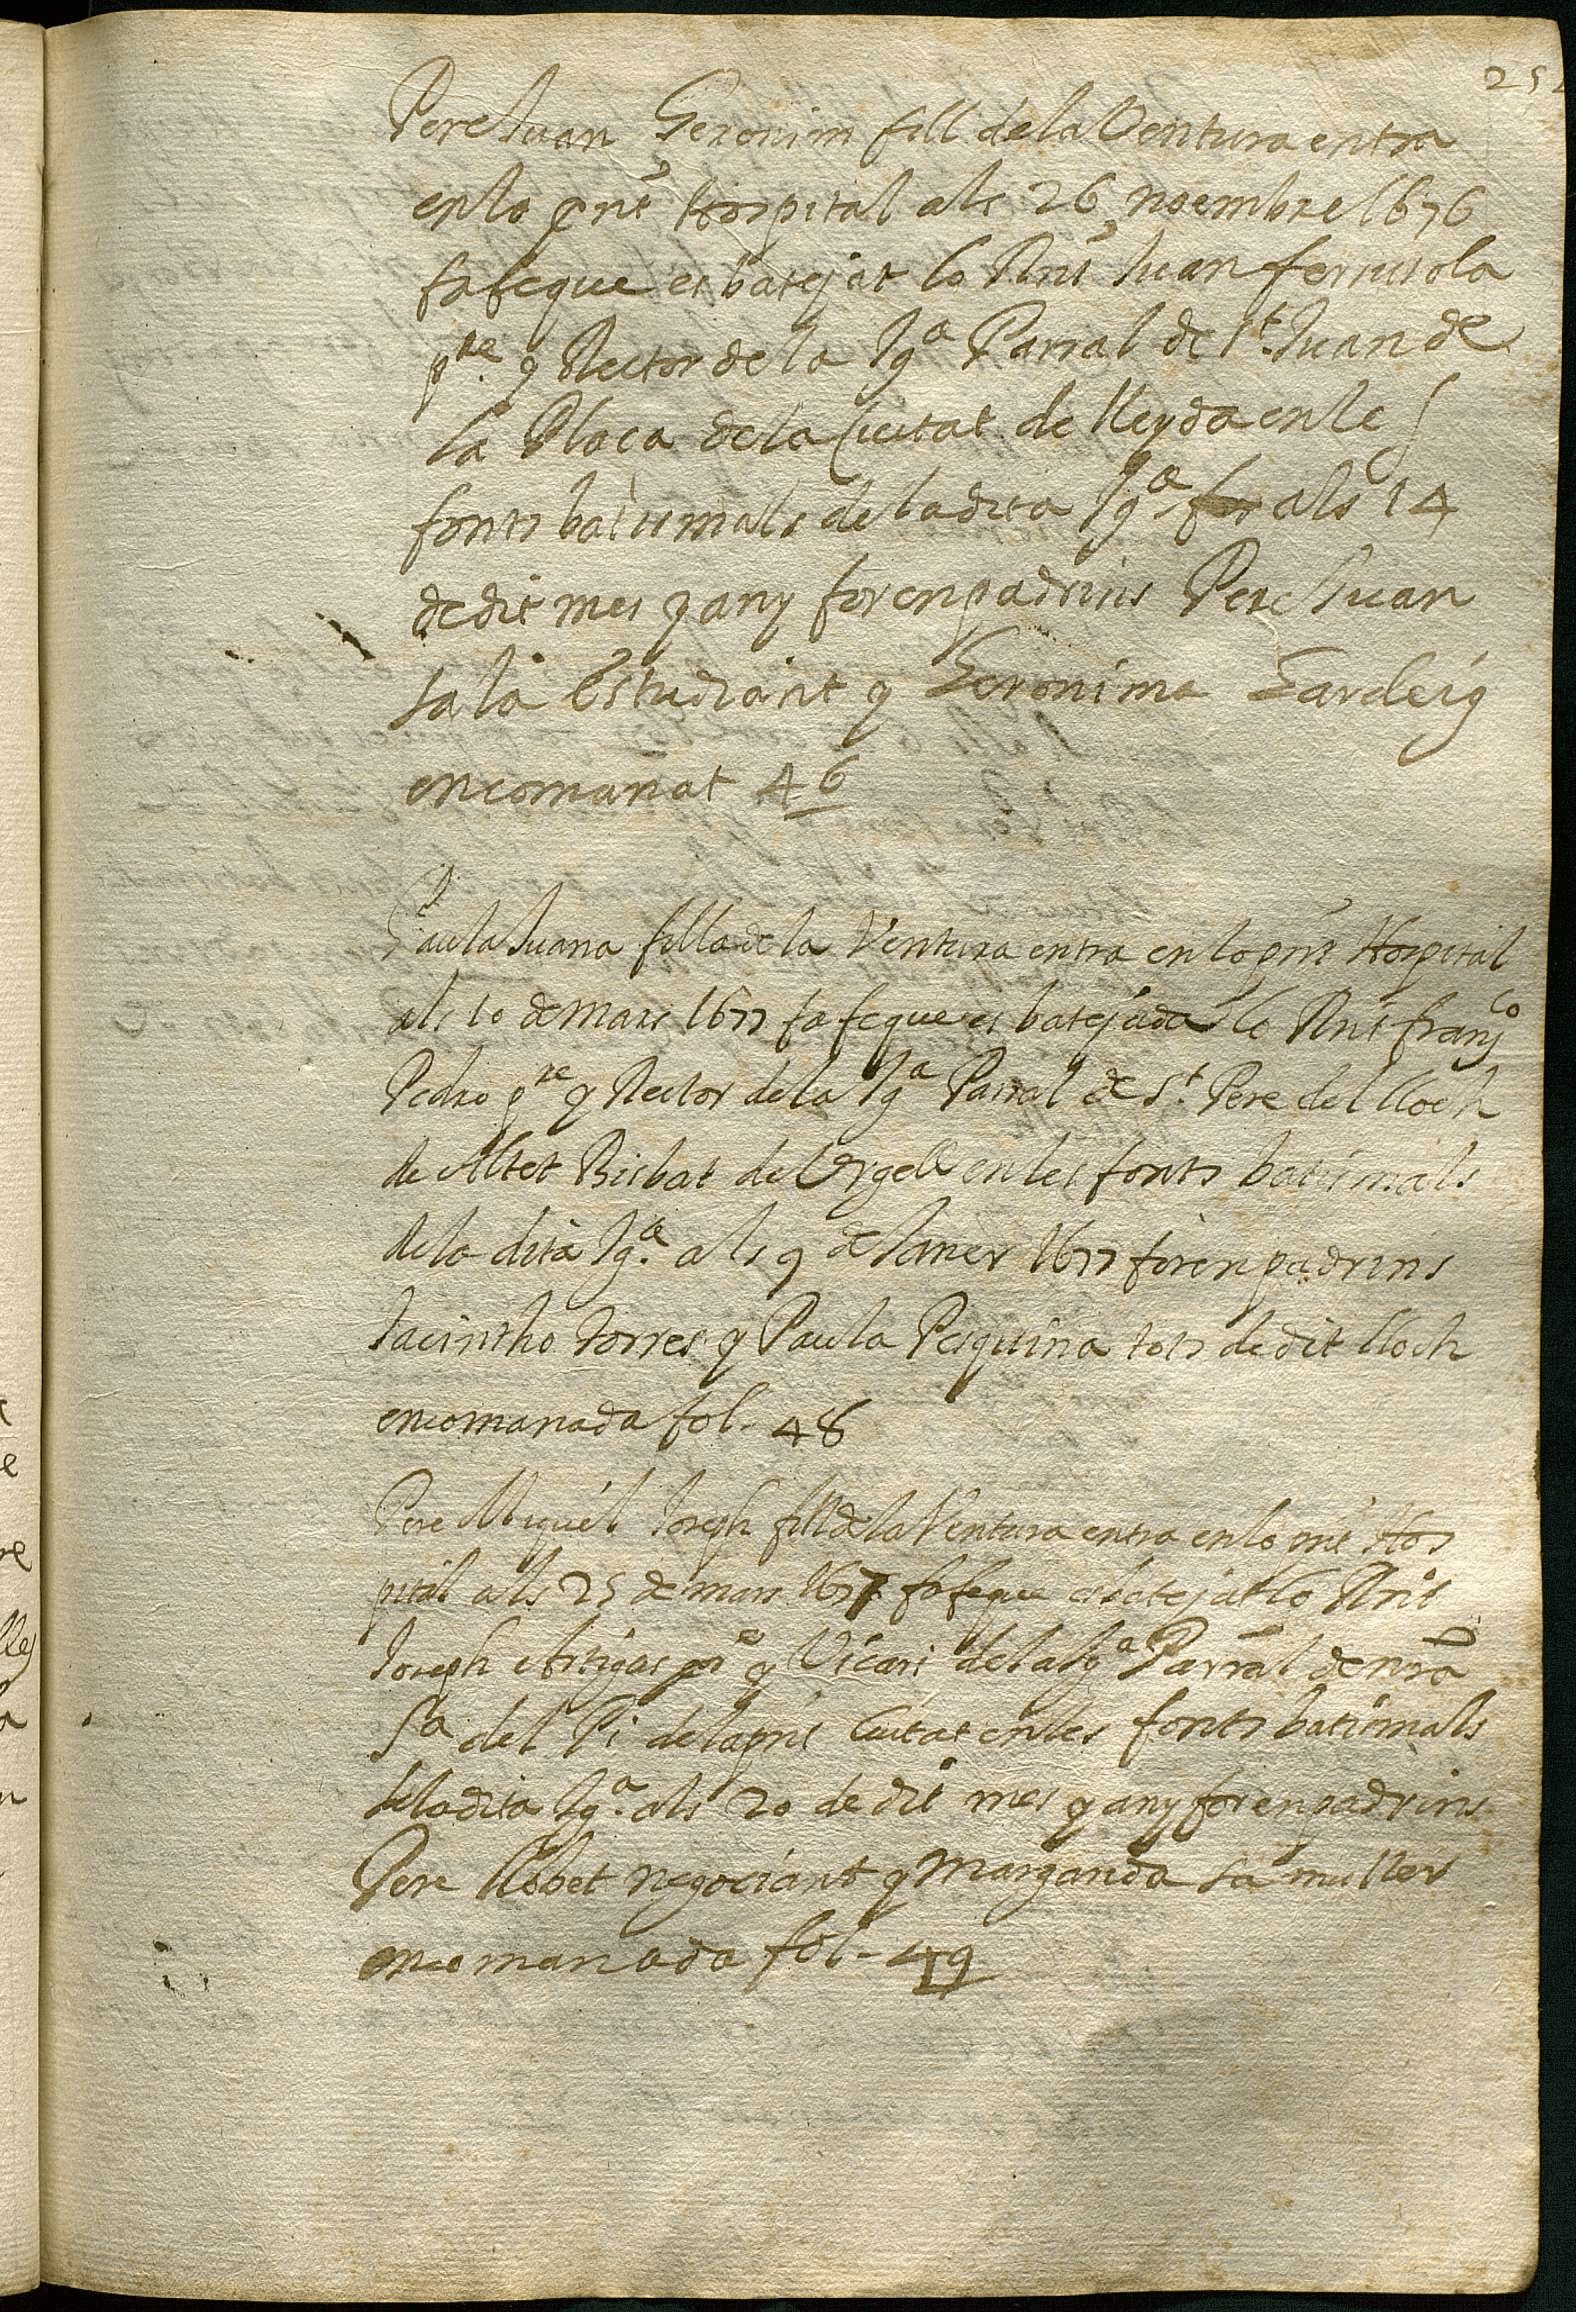 25
Pere Juan Geronim fill de la Ventura entra
en lo pnt Hospital als 26 noembre 1676
fa fe que es batejat lo Rnt Juan ferrusola
pre y Rector de la Iga Parral de St. Juan de
la Plaça de la Ciutat de lleyda en les
fonts batismals de la dita Iga als 14
de dit mes y any foren padrins Pere Juan
sala Estudiant y Geronima
encomanat 46
Paula Juana filla de la Ventura entra en lo pnt Hospital
als 10 de Mars 1677 fa fe que es batejada lo Rnt franco
Pedro pre y Rector de la Iga Parral de St. Pere del lloch
de Altet Bisbat de Urgell en les fonts batismals
de la dita Iga. als 9 de Janer 1677 foren padrins
Jacintho torres y Paula Pesquina tots de dit lloch
encomanada fol. 48
Pere Miquel Joseph fill de la Ventura entra en lo pnt Hos
pital als 25 de mars 1677 fa fe que es batejat lo Rnt
Joseph Artigas pre y Vicari de la Iga Parral de nra
Sa del Pi de la pnt Ciutat en les fonts batismals
de la dita Iga. als 20 de dit mes y any foren padrins
Pere llobet negociant y Margarida sa muller
encomanada fol - 49